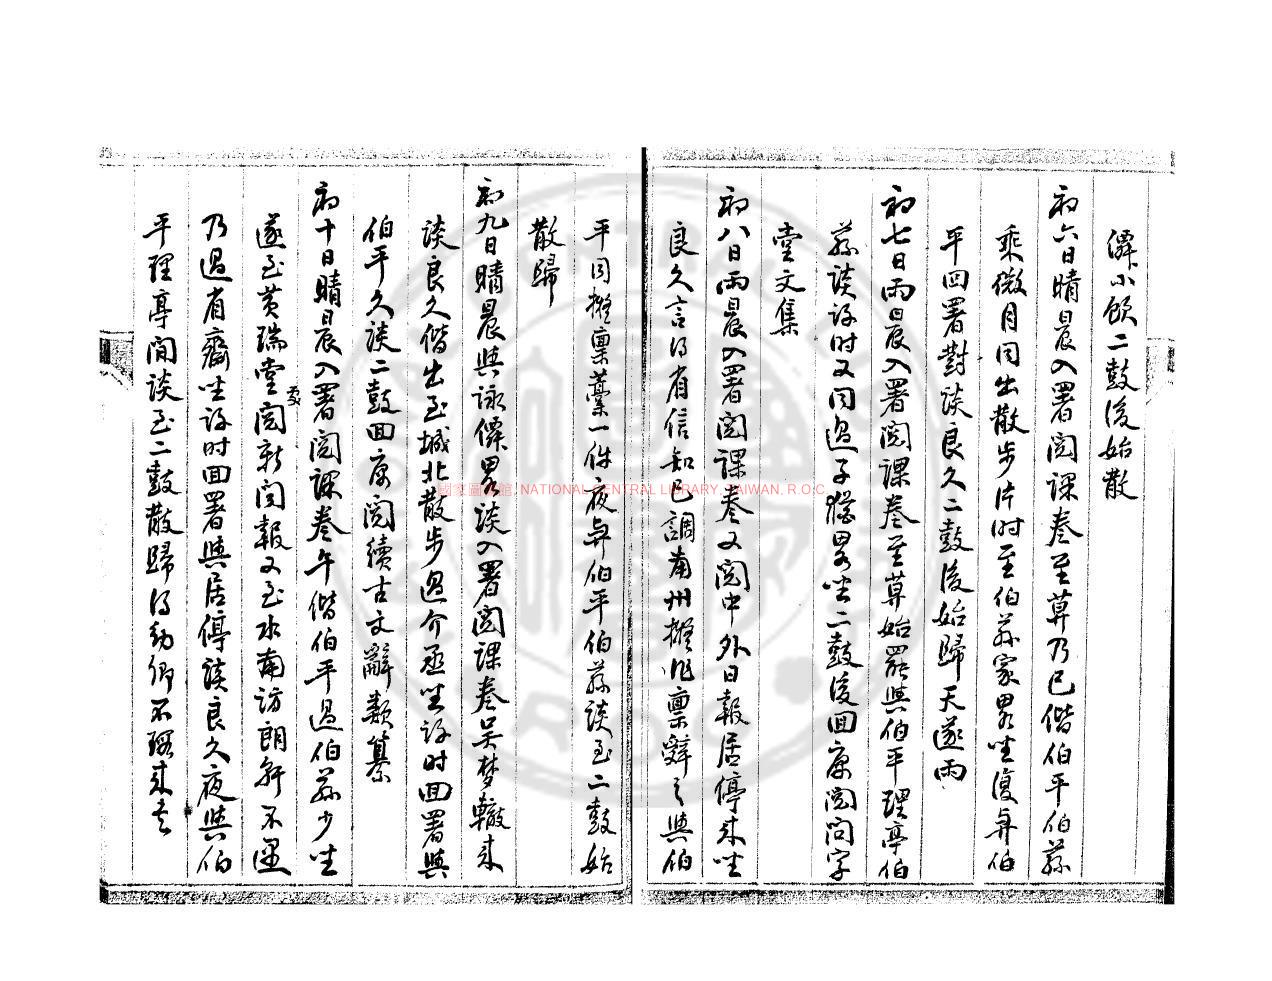 小飲二鼓後始散
初六日晴晨入署閱課卷至莫乃已偕伯平伯蓀
乘微月同出散步片時至伯蓀家畧坐復與伯
平回署對談良久二鼓後始歸天遂雨
初七日雨晨入署閱課卷至莫始罷與伯平理亭伯
蓀談許時又同過子猶畧坐二鼓後回寓閱問字
堂文集
初八日雨晨入署閱課卷又閱中外日報居停來坐
良久言得省信知已調南州擬作稟辭之與伯
平同擬稟藁一件夜與伯平伯蓀談至二鼓始
散歸
初九日晴晨與詠僊畧談入署閱課卷吳梦轍來
談良久偕出至城北散步過介丞坐許時回署與
伯平久談二鼓回寓閱續古文辭類纂
初十日晴晨入署閱課卷午偕伯平過伯蓀少坐
遂至黃瑞堂處閱新聞報又至水南訪朗軒不遇
乃過有齋坐許時回署與居停談良久夜與伯
平理亭閒談至二鼓散歸得幼卿不能來
國家圖書館, NATIONAL CENTRAL LIBRARY, TAIWAN, R.O.C